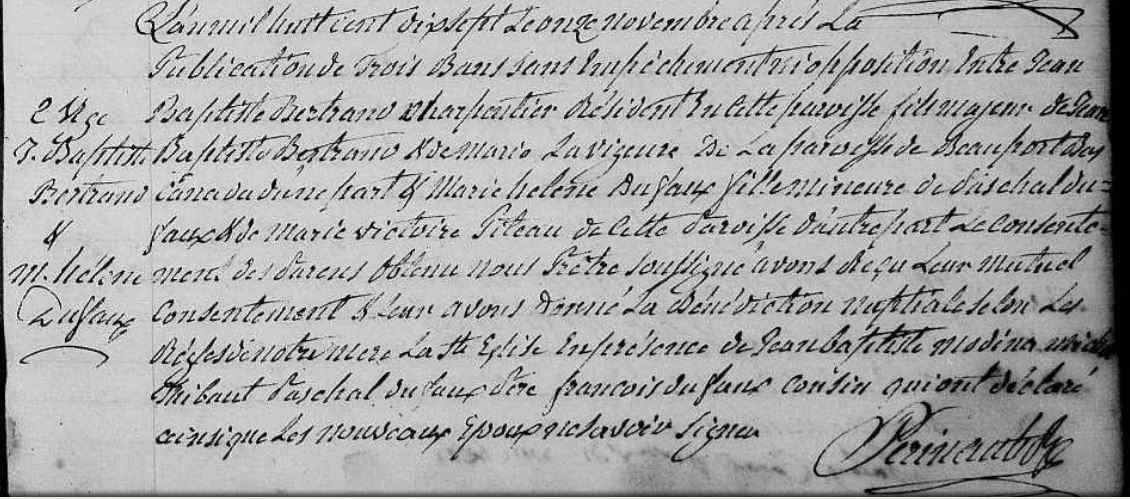 L'an mil huit cent dix sept le onze novembre après La
Publication de Trois Bans sans Empêchement ni opposition Entre Jean
Baptiste Bertrand charpentier Résident En Cette paroisse fils majeur de Jean
Baptiste Bertrand & de Marie Lavigeure De La paroisse de Beauport Bas
Canada d'une part & Marie helene Dufaux fille mineure de Paschal du=
faux & de Marie victoire Piteau de Cette Paroisse d'autre part Le Consente=
ment des Parens Obtenu nous Prêtre soussigné avons Reçu Leur mutuel
Consentement & Leur avons Donné La Bénédiction nuptiale selon Les
Règles de notre mere La Ste Eglise En présence de Jean baptiste
Thibaut Paschal dufaux Père francois dufaux Cousin qui ont déclaré
ainsi que Les nouveaux Epoux ne savoir Signer
J. Baptiste
Bertrand
&
M. hélène
Dufaux